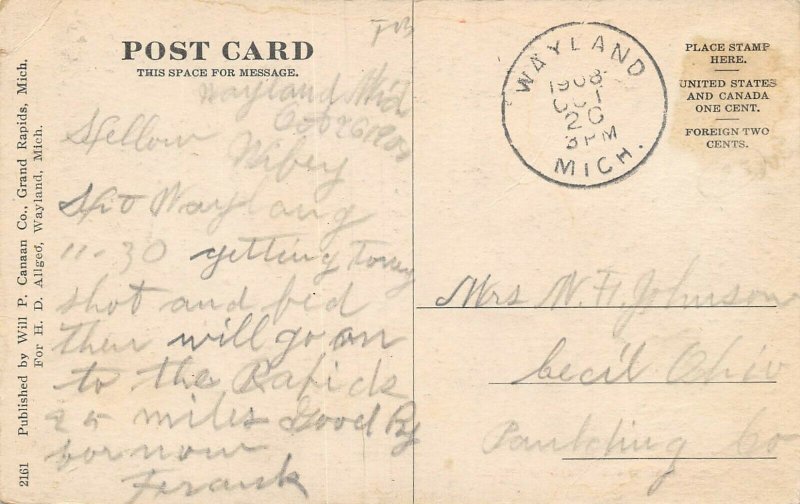 POST CARD
THIS SPACE FOR MESSAGE.
Wayland Mich
Oct 26 1908
Hellow
Wifey
Hit Wayland
11-30 getting Tony
shod and fed
then will go on
to the Rapids
25 miles Good By
for now
Frank
WAYLAND
1908
OCT
26
3 PM
MICH.
PLACE STAMP
HERE.
UNITED STATES
AND CANADA
ONE CENT.
FOREIGN TWO
CENTS.
Mrs W. H. Johnson
Cecil Ohio
Paulding Co
2161 Published by Will P. Canaan Co., Grand Rapids, Mich.
For H. D. Allged, Wayland, Mich.